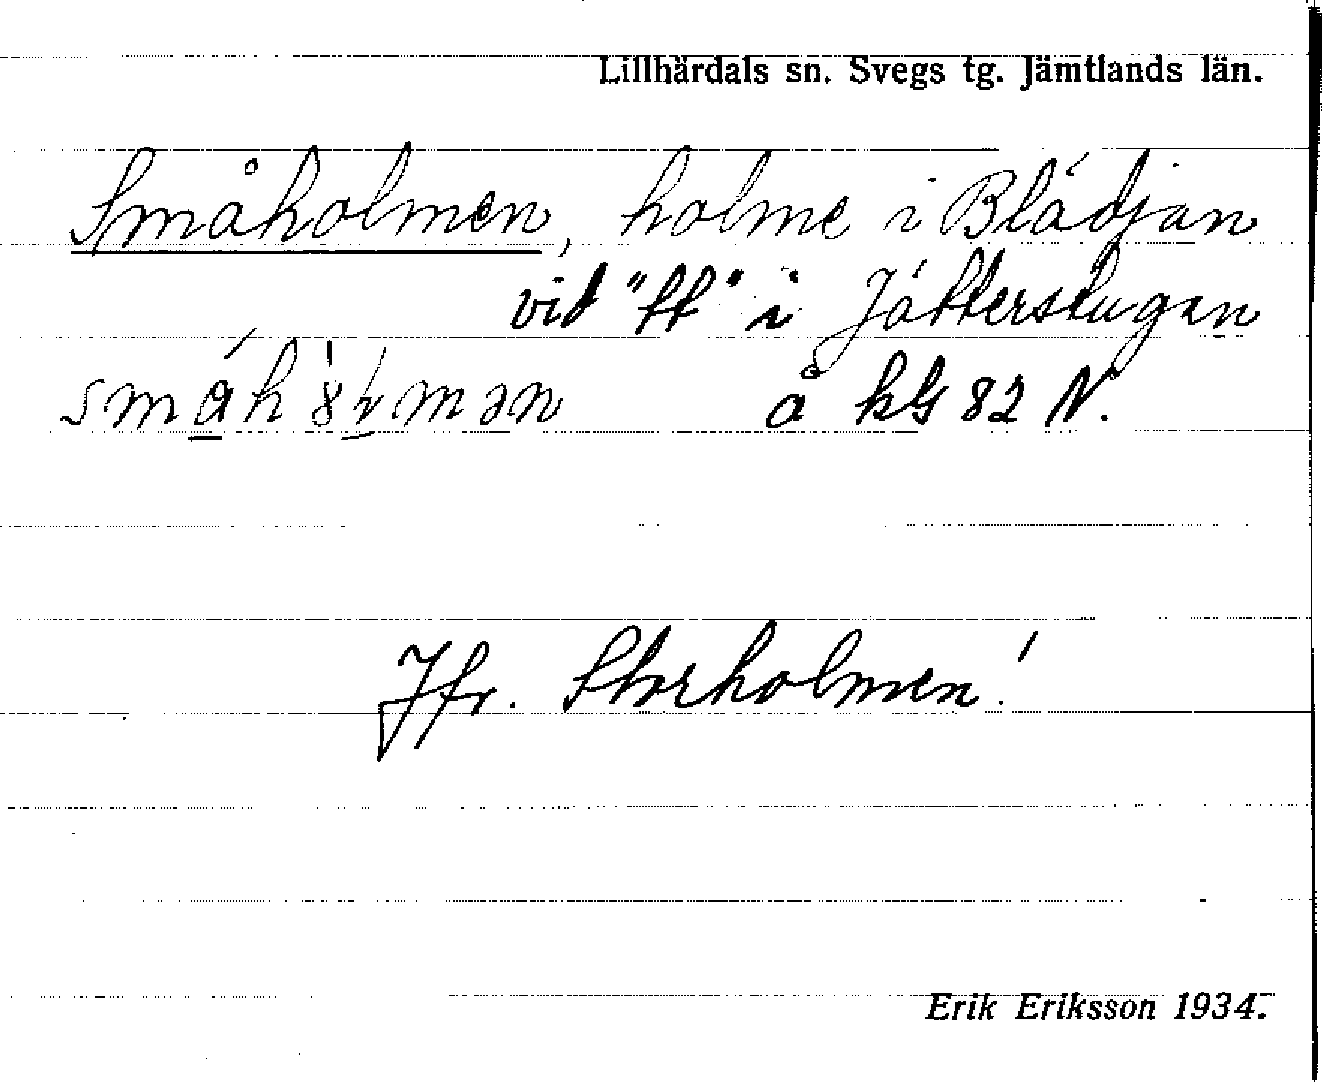 Lillhärdals sn. Svegs tg. Jämtlands län.
Småholmen, holme i Blädjan
vid "tt" i Jätterstugan
å kG 82 N.
Jfr. Storholmen!
Erik Eriksson 1934.